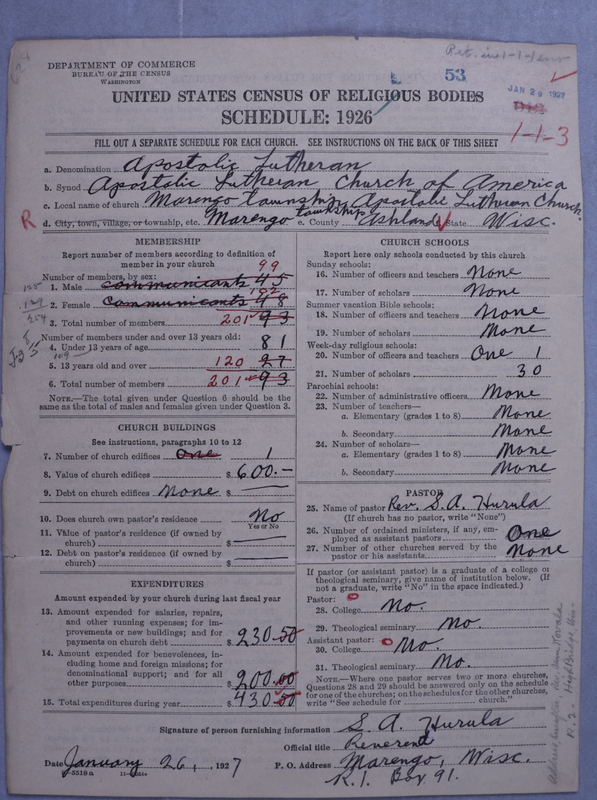 Ret. in 1-1-1 env
DEPARTMENT OF COMMERCE
BUREAU OF THE CENSUS
WASHINGTON
53
JAN 29 1927
UNITED STATES CENSUS OF RELIGIOUS BODIES
SCHEDULE: 1926
1-1-3
FILL OUT A SEPARATE SCHEDULE FOR EACH CHURCH. SEE INSTRUCTIONS ON THE BACK OF THIS SHEET
a. Denomination Apostolic Lutheran
b. Synod Apostolic Lutheran Church of America
c. Local name of church Marengo township Apostolic Lutheran Church
R d. City, town, village, or township, etc. Marengo township e. County Ashland State Wisc.
MEMBERSHIP
Report number of members according to definition of member in your church
Number of members, by sex: 99
1. Male communicants 45
102
2. Female communicants 48
3. Total number of members 201 93
Number of members under and over 13 years old:
4. Under 13 years of age 81
5. 13 years old and over 120 27
6. Total number of members 201 93
NOTE.—The total given under Question 6 should be the same as the total of males and females given under Question 3.
CHURCH BUILDINGS
See instructions, paragraphs 10 to 12
7. Number of church edifices One 1
8. Value of church edifices $ 600.—
9. Debt on church edifices None $ —
10. Does church own pastor's residence No
Yes or No
11. Value of pastor's residence (if owned by church) $ —
12. Debt on pastor's residence (if owned by church) $ —
EXPENDITURES
Amount expended by your church during last fiscal year
13. Amount expended for salaries, repairs, and other running expenses; for improvements or new buildings; and for payments on church debt $ 230.50
14. Amount expended for benevolences, including home and foreign missions; for denominational support; and for all other purposes $ 200.00
15. Total expenditures during year $ 430.50
CHURCH SCHOOLS
Report here only schools conducted by this church
Sunday schools:
16. Number of officers and teachers None
17. Number of scholars None
Summer vacation Bible schools:
18. Number of officers and teachers None
19. Number of scholars None
Week-day religious schools:
20. Number of officers and teachers One 1
21. Number of scholars 30
Parochial schools:
22. Number of administrative officers None
23. Number of teachers—
a. Elementary (grades 1 to 8) None
b. Secondary None
24. Number of scholars—
a. Elementary (grades 1 to 8) None
b. Secondary None
PASTOR
25. Name of pastor Rev. S. A. Hurula
(If church has no pastor, write "None")
26. Number of ordained ministers, if any, employed as assistant pastors One
27. Number of other churches served by the pastor or his assistants None
If pastor (or assistant pastor) is a graduate of a college or theological seminary, give name of institution below. (If not a graduate, write "No" in the space indicated.)
Pastor:
28. College No.
29. Theological seminary No.
Assistant pastor:
30. College No.
31. Theological seminary No.
NOTE.—Where one pastor serves two or more churches, Questions 28 and 29 should be answered only on the schedule for one of the churches; on the schedules for the other churches, write "See schedule for church."
Signature of person furnishing information S. A. Hurula
Official title Reverend
Date January 26, 1927 P. O. Address Marengo, Wisc.
R. 1. Box 91.
R. 2 High Bridge, Wis.